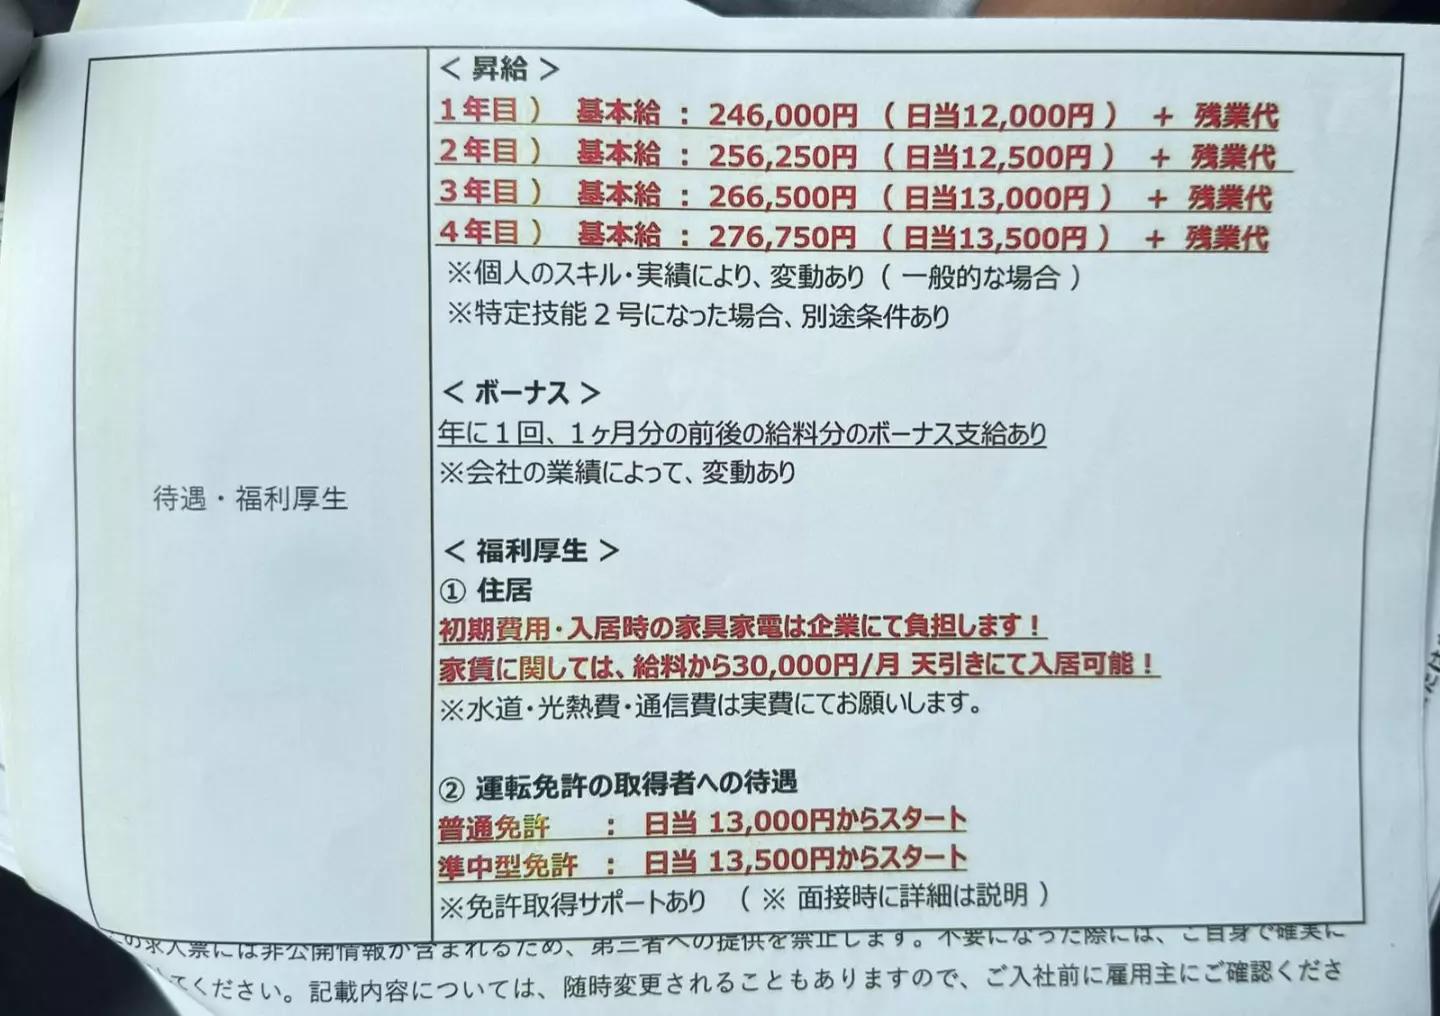 待遇・福利厚生
＜ 昇給 ＞
１年目） 基本給 ： 246,000円 （ 日当12,000円 ） ＋ 残業代
２年目） 基本給 ： 256,250円 （ 日当12,500円 ） ＋ 残業代
３年目） 基本給 ： 266,500円 （ 日当13,000円 ） ＋ 残業代
４年目） 基本給 ： 276,750円 （ 日当13,500円 ） ＋ 残業代
※個人のスキル・実績により、変動あり（ 一般的な場合 ）
※特定技能２号になった場合、別途条件あり
＜ ボーナス ＞
年に１回、１ヶ月分の前後の給料分のボーナス支給あり
※会社の業績によって、変動あり
＜ 福利厚生 ＞
① 住居
初期費用・入居時の家具家電は企業にて負担します！
家賃に関しては、給料から30,000円/月 天引きにて入居可能！
※水道・光熱費・通信費は実費にてお願いします。
② 運転免許の取得者への待遇
普通免許 ： 日当 13,000円からスタート
準中型免許 ： 日当 13,500円からスタート
※免許取得サポートあり （ ※ 面接時に詳細は説明 ）
の求人票には非公開情報が含まれるため、第三者への提供を禁止します。不要になった際には、ご自身で確実に
てください。記載内容については、随時変更されることもありますので、ご入社前に雇用主にご確認くださ